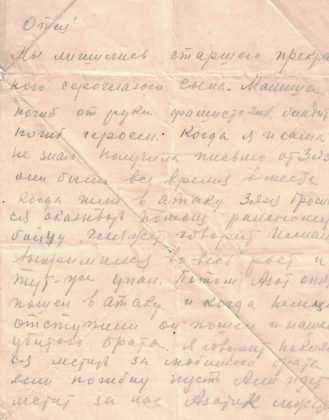 Отец!
Мы лишились старшего прекрас
ного сероглазого сына. Мамиша
погиб от руки фашистских бандит
погиб героем. Когда я и сама
не знаю получила письмо от Зязя
они были все время в месте
когда шли в атаку Зязя бросил
ся оказывать помощь раненому
бойцу, говорит
выпрямился во весь рост и
тут же упал. Потом Азат опять
пошел в атаку и когда немцы
отступили он пошел и нашел
убитого брата. Я говорит поклял
ся мстить за любимого брата
если погибну пусть Али идет
мстит за нас Азатик